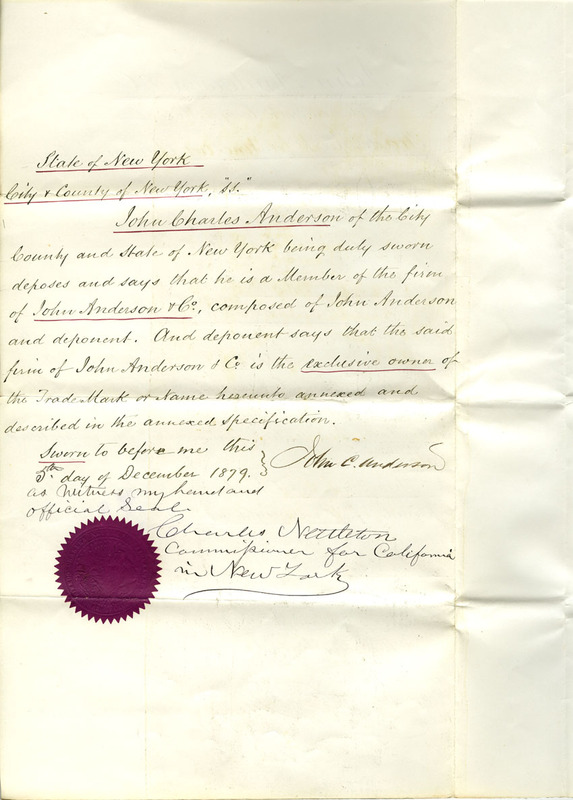 State of New York
City & County of New York, "SS."
John Charles Anderson of the City
County and State of New York being duly sworn
deposes and says that he is a Member of the firm
of John Anderson & Co, composed of John Anderson
and deponent. And deponent says that the said
firm of John Anderson & Co is the exclusive owner of
the Trade Mark or Name hereunto annexed and
described in the annexed specification.
Sworn to before me this
5th day of December 1879.
John C. Anderson
as Witness my hand and
official Seal.
Charles Nettleton
Commissioner for California
in New York